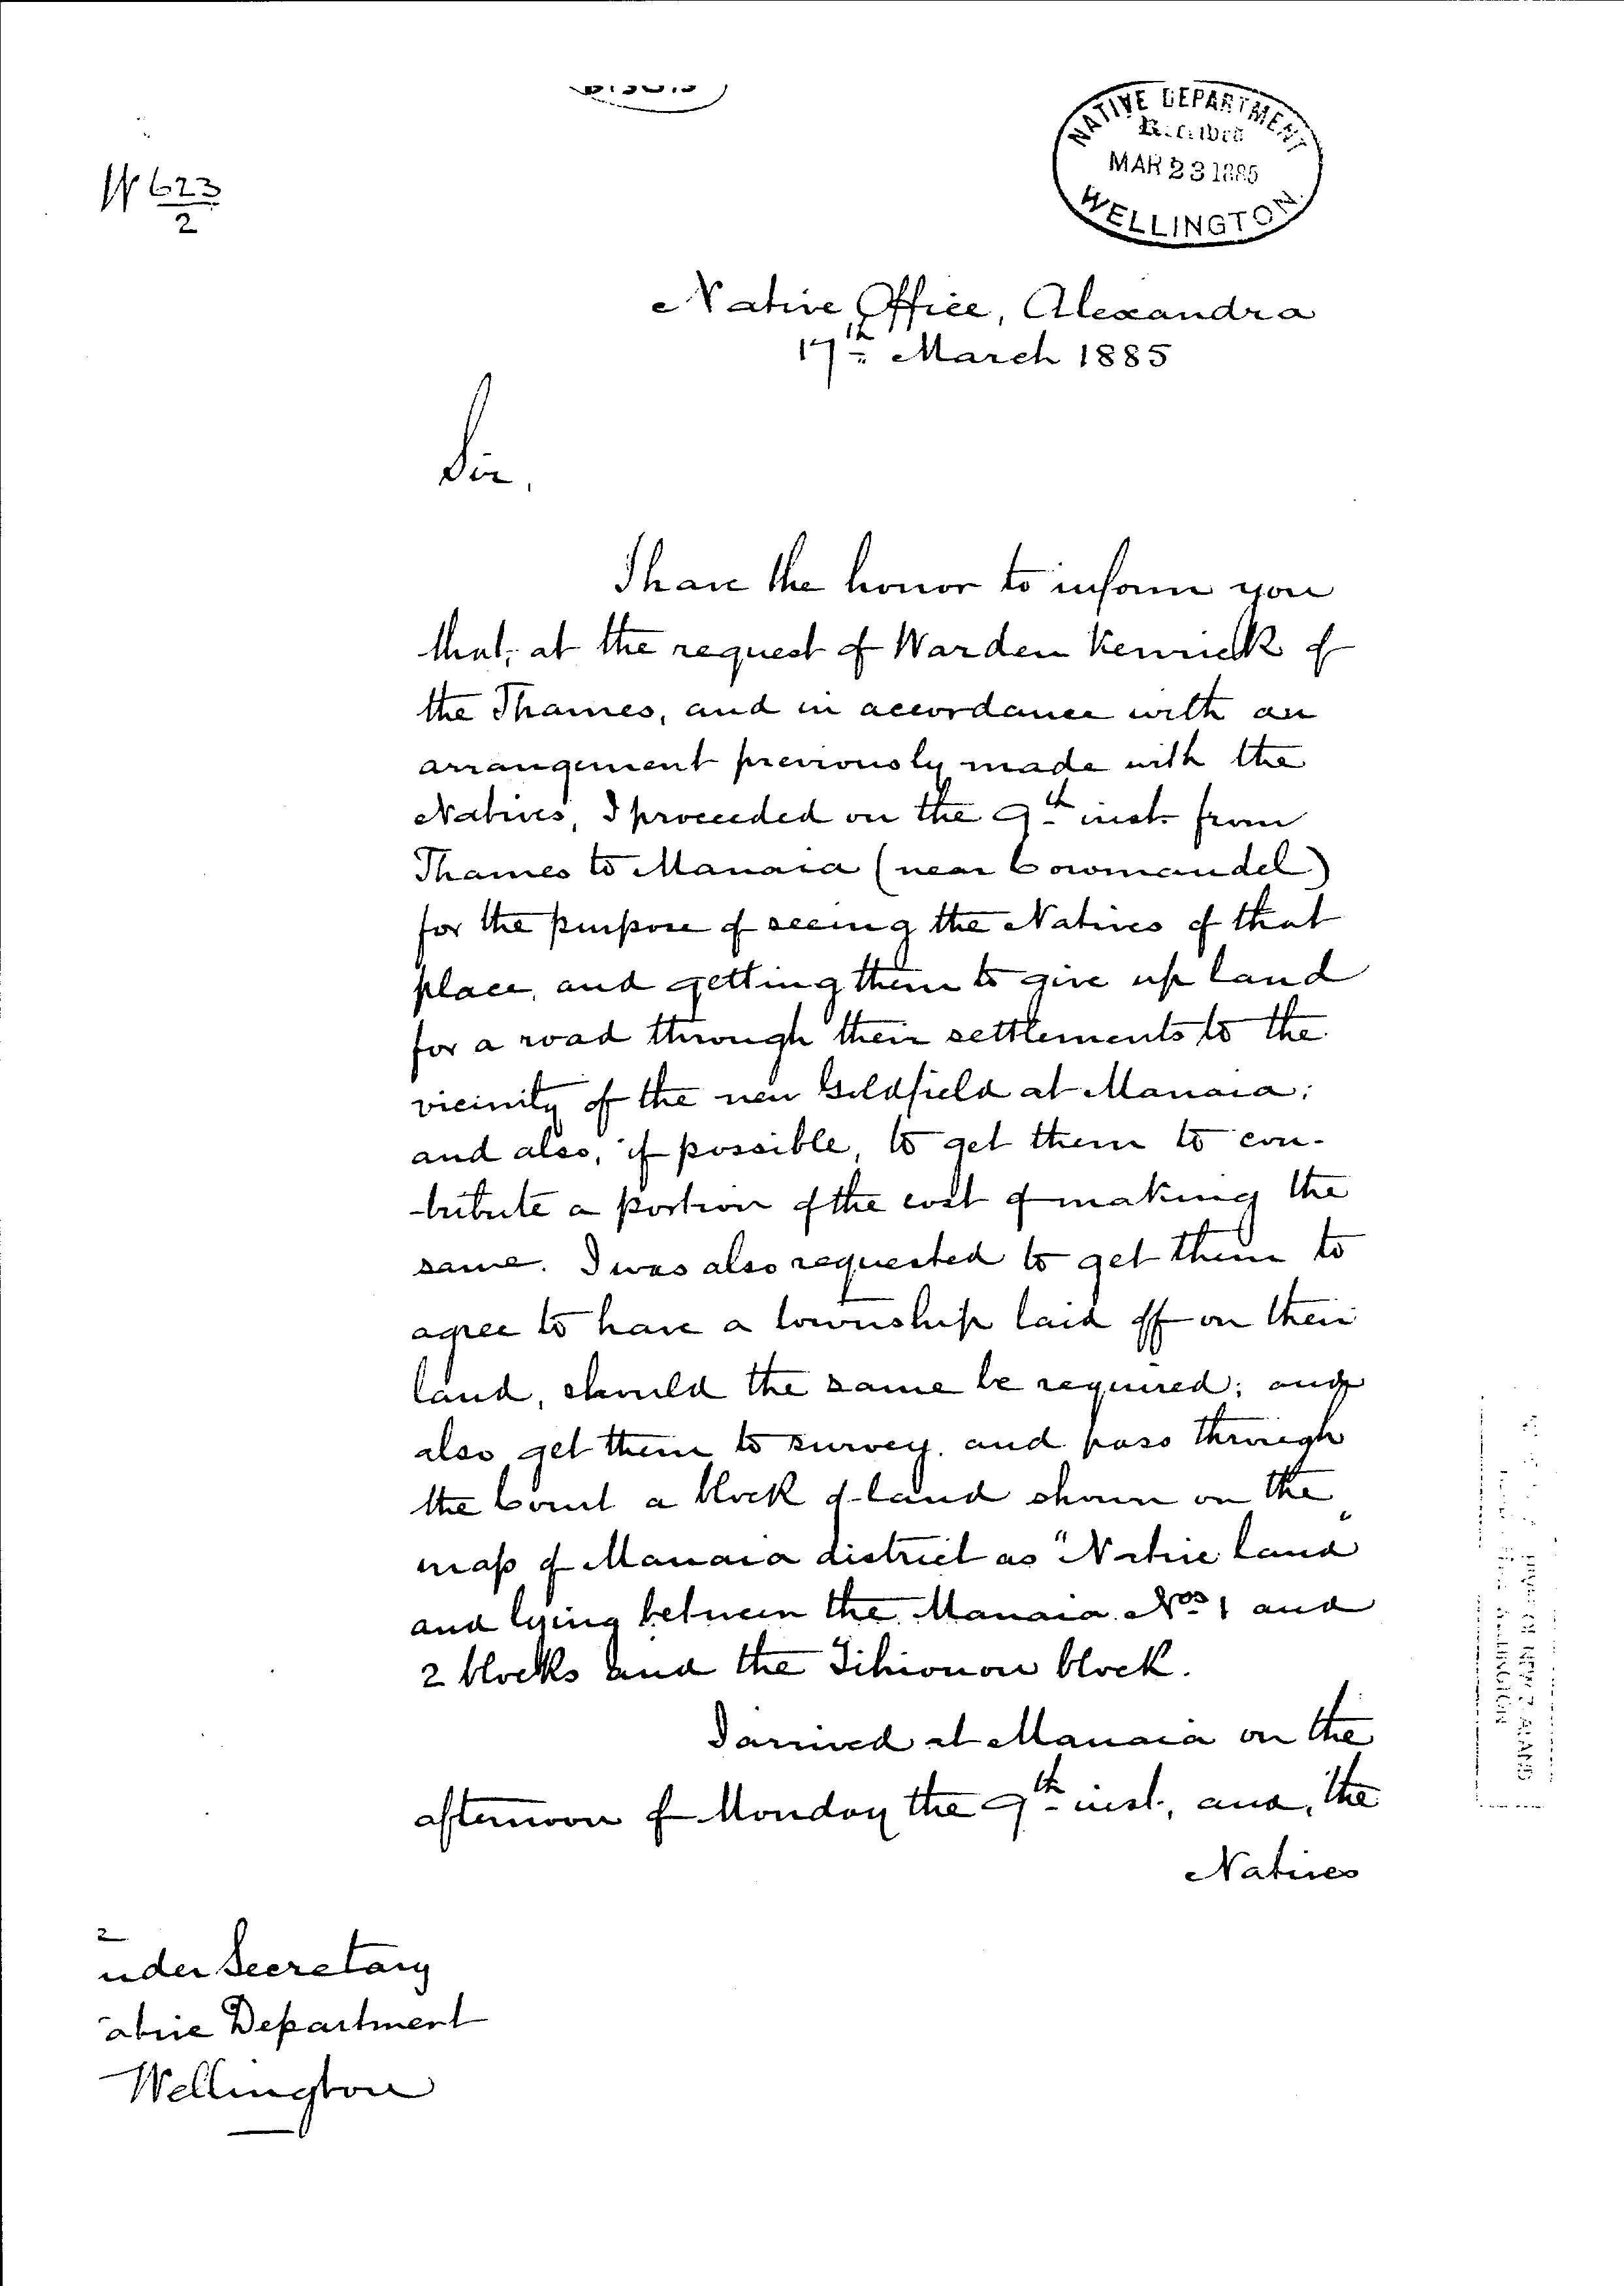 NATIVE DEPARTMENT
Received
MAR 23 1885
WELLINGTON.
W 623/2
Native Office, Alexandra
17th March 1885
Sir,
I have the honor to inform you
that, at the request of Warden Kenrick of
the Thames, and in accordance with an
arrangement previously made with the
Natives, I proceeded on the 9th inst. from
Thames to Manaia (near Coromandel)
for the purpose of seeing the Natives of that
place, and getting them to give up land
for a road through their settlements to the
vicinity of the new Goldfield at Manaia;
and also, if possible, to get them to con-
-tribute a portion of the cost of making the
same. I was also requested to get them to
agree to have a township laid off on their
land, should the same be required; and
also get them to survey and pass through
the Court a block of land shown on the
map of Manaia district as "Native land"
and lying between the Manaia Nos 1 and
2 blocks and the block.
I arrived at Manaia on the
afternoon of Monday the 9th inst., and, the
Natives
nder Secretary
ative Department
Wellington